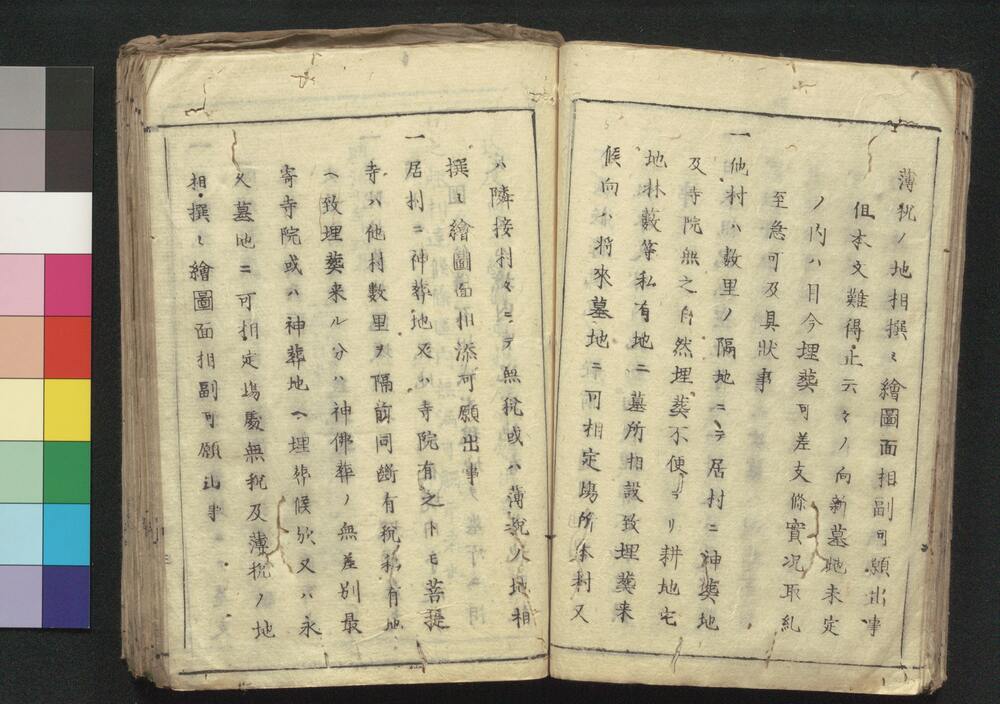 薄税ノ地相撰ミ繪圖面相副可願出事
但本文難得止云々ノ向新墓地未定
ノ内ハ目今埋葬可差支條實況取糺
至急可及具狀事
一他村ハ数里ノ隔地ニテ居村ニ神葬地
及寺院無之自然埋葬不便ヨリ耕地宅
地林藪等私有地ニ墓所相設致埋葬来
候向ハ将來墓地ニ可相定場所本村又
ハ隣接村々ニテ無税或ハ薄税ノ地相
撰ミ繪圖面相添可願出事
一居村ニ神葬地又ハ寺院有之トモ菩提
寺ハ他村数里ヲ隔前同斷有税私有地
ヘ致埋葬来ル分ハ神佛葬ノ無差別最
寄寺院或ハ神葬地ヘ埋葬候欤又ハ永
久墓地ニ可相定場處無税及薄税ノ地
相撰ミ繪圖面相副可願出事